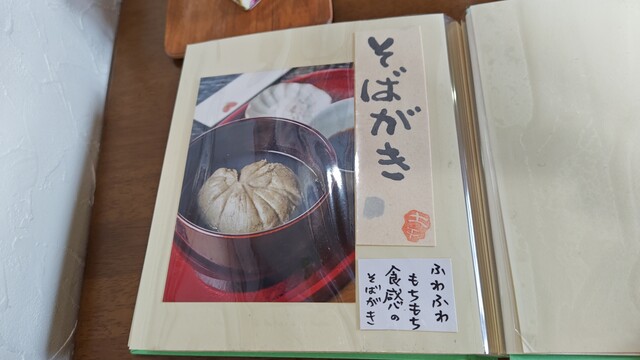 そばがき
ふわふわ
もちもち
食感の
そばがき